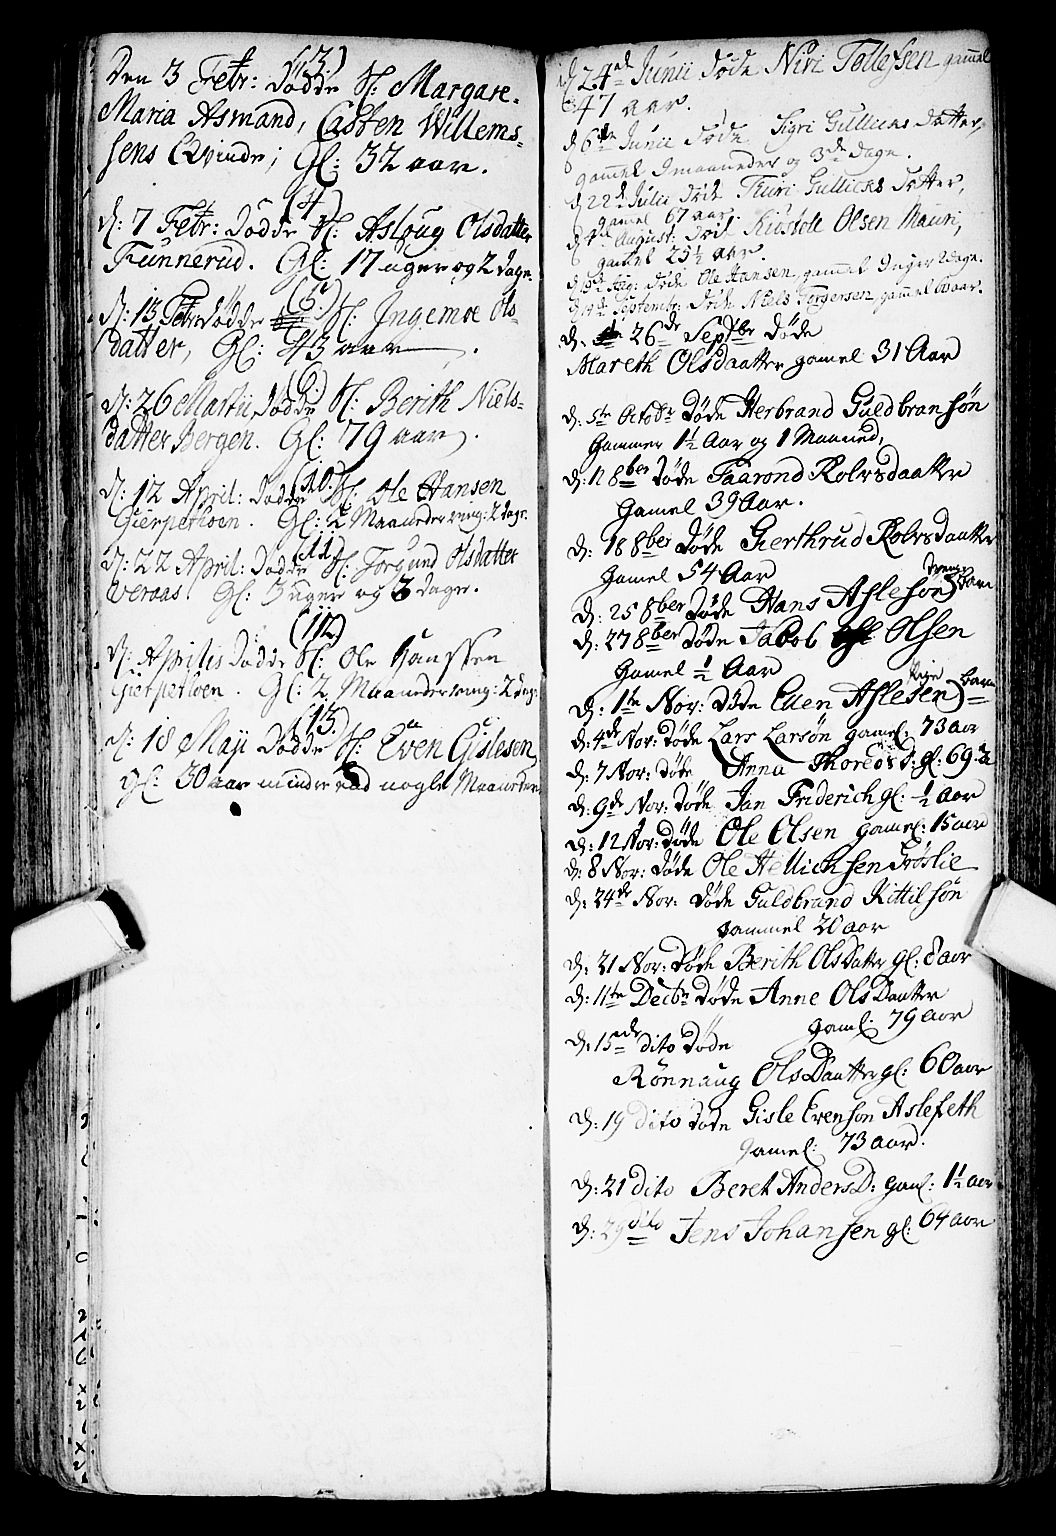 (3)
Den 3 Febr: Dødde Sl: Margare-
Maria Asmand, Casten Willems-
sens Qvinde; Gl: 32 aar.
(4)
D: 7 Febr: Dødde Sl: Asloug Olsdatter
Funnerud. Gl: 17 uger og 2 dage.
(5)
D: 13 Febr: dødde Sl: Ingeborg Ols-
datter, Gl: 43 aar.
(6)
D: 26 Martii Dødde Sl: Berith Niels-
datter Bergen. Gl: 79 aar.
(10.)
D: 12 April: Dødde Sl: Ole Hansen
Gierperhoen. Gl: 2 Maaneder ring: 2 dage.
(11)
D: 22 April: Dødde Sl: Jorgund Olsdatter
Veraas. Gl: 3 uger og 3 dage.
(12)
D: Aprilis Dødde Sl: Ole Hanssen
Gierperhoen. Gl: 2 Maaneder ring: 2 dage.
(13.)
D: 18 Maji Dødde Sl: Even Gislesen
gl: 30 aar mindre end nogle Maaneder
d 24de Junii døde Niri Tollefsen gammel
47 aar.
d 6te Junii døde Sigri Gullichs datter,
gammel 9 maaneder og 3de dage.
d 22de Julii døde Thuri Gullichs datter,
gamel 67 aar.
August: døde Kiostoll Olsen Mauri,
gamel 25½ aar.
Aug: døde Ole Hansen gammel 9 uger 2 dage.
Septembr: døde Niels Torgersen, gammel 60 aar.
d: 26de Septbr døde
Mareth Olsdaatter gamel 31 Aar
d: 5te Octobr Døde Herbrand Guldbransøn
Gammer 1½ Aar og 1 Maaned,
d: 11 8ber døde Taarond Rolvsdaatter
Gamel 39 Aar.
d: 18 8ber Døde Gierthrud Rolvsdaatter
Gamel 54 Aar
d: 25 8ber Døde Hans Aslesøn Drenge Barn
d: 27 8ber Døde Jacob Olsen
Gamel ½ Aar
d: 1te Nov: Døde Eden Aslesen Pige Barn
d: 4de Nov: Døde Lars Larsøn gamel: 73 aar
d: 7 Nov: døde Anna Thoreds D: gl: 69 a
d: 9de Nov: døde Jan Friderich gl: ½ Aar
d: 12 Nov: døde Ole Olsen gamel: 15 aar
d: 8 Nov: Døde Ole Hellichsen Frøslie
d: 24de Nov: Døde Guldbrand Kittilsøn
Gammel 20 aar
d: 21 Nov: Døde Berith OlsDatter gl: 8 aar
d: 11te Decbr Døde Anne OlsDaatter
Gamel: 79 aar
d: 15de dito Døde
Rønnaug OlsDaatter gl: 60 aar
d: 19 dito døde Gisle Evensøn Aslefeth
Gamel: 73 aar.
d: 21 dito Beret AndersD: gaml: 1½ aar
d: 29 dito Jens Johansen gl: 64 aar